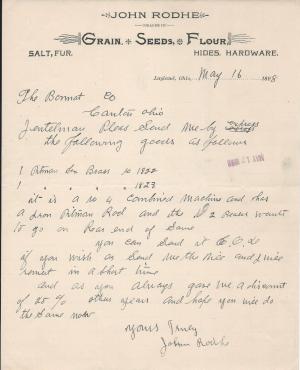 JOHN RODHE
DEALER IN
GRAIN, SEEDS, FLOUR,
SALT, FUR, HIDES, HARDWARE.
Ohio, May 16 1898
The Bonnat Co
Canton Ohio
Jentelman Pleas Send Me by express
the following goods as follows
1 Pitman Box Brass No 1822
1 " " " 1823
it is a No 4 Combined Machine and has
a Iron Pitman Rod and the 2 Boxes want
to go on Rear end of Same
you can Send it C.O.D
if you wish or Send me the Price and I will
remit in a Short time
and as you always gave me a discount
of 25 % other years and hope you will do
the Same now
Yours Truly
John Rodhe